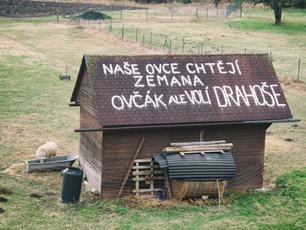 NAŠE OVCE CHTĚJÍ
ZEMANA
OVČÁK ALE VOLÍ DRAHOŠE